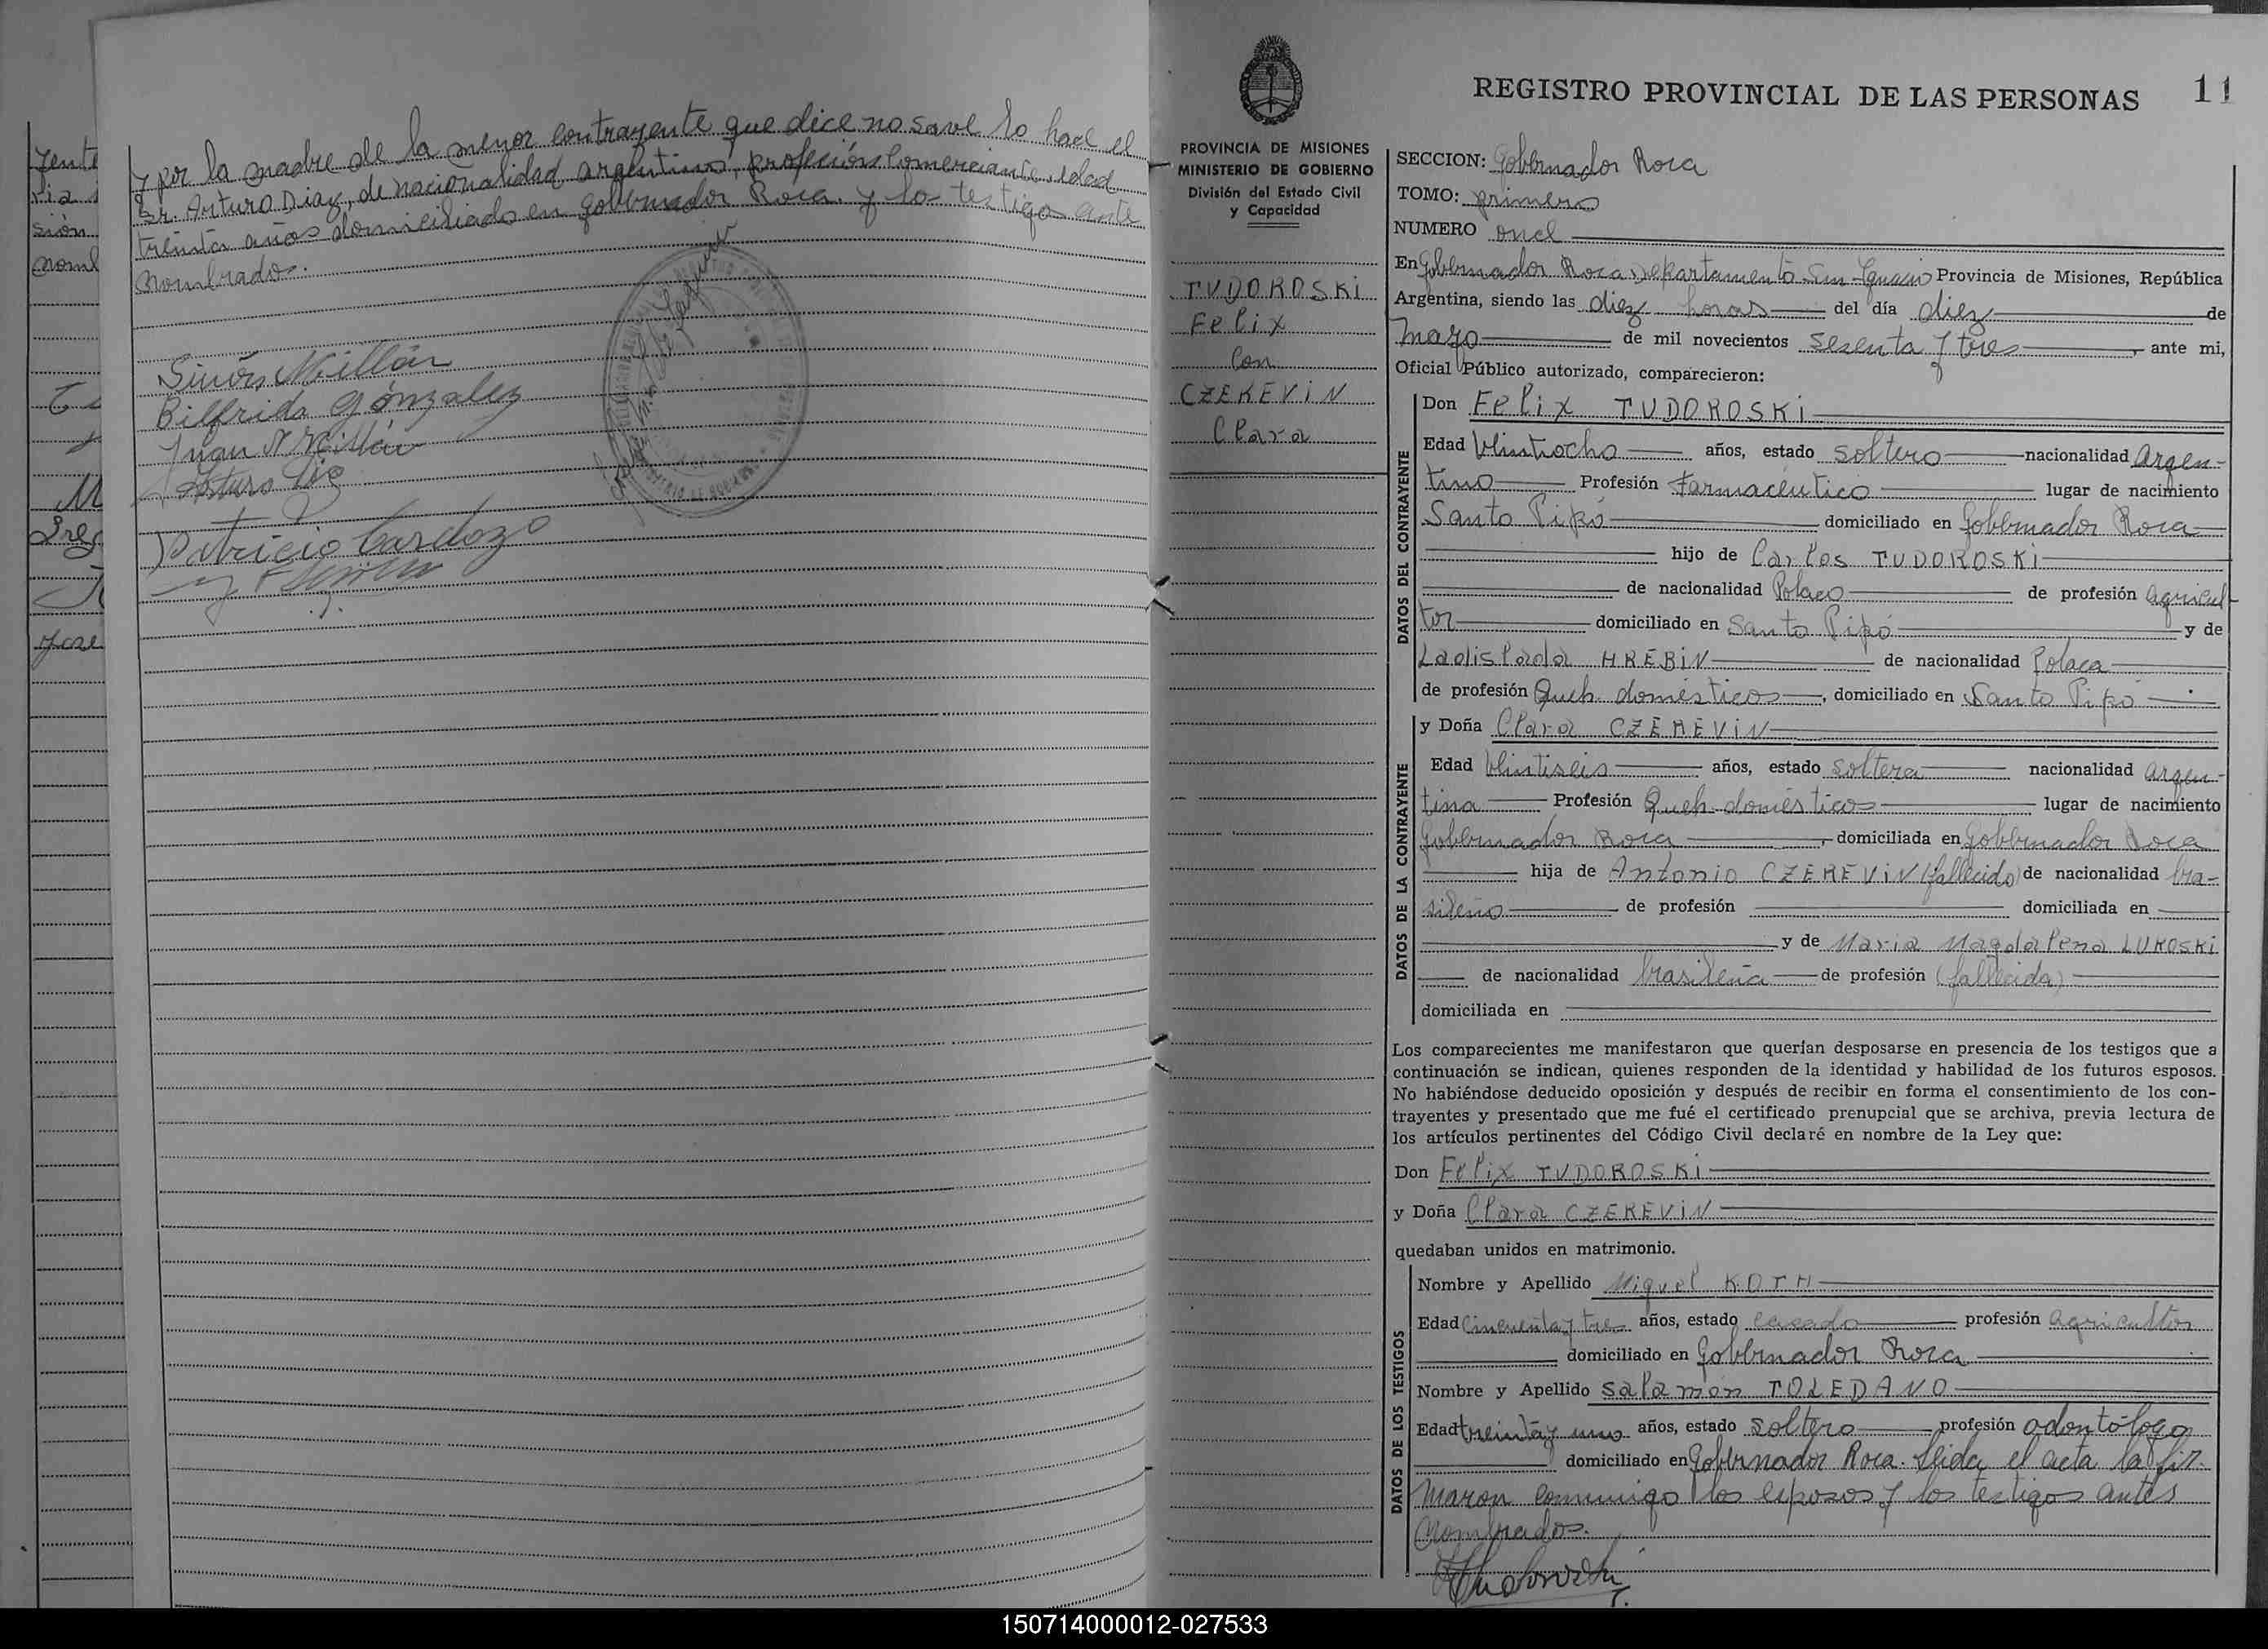 y por la madre de la menor contrayente que dice no save lo hace el
Sr. Arturo Diaz, de nacionalidad argentino, profesión comerciante, edad
treinta años domiciliado en gobernador Roca y lo testigo ante
nombrado.
Bilfrida Gónzalez
Patricio Cardozo
REGISTRO PROVINCIAL DE LAS PERSONAS 11
PROVINCIA DE MISIONES
MINISTERIO DE GOBIERNO
División del Estado Civil
y Capacidad
TUDOROSKI
Felix
Con
CZEREVIN
Clara
SECCION: Gobernador Roca
TOMO: primero
NUMERO once
En Gobernador Roca Departamento San Ignacio Provincia de Misiones, República
Argentina, siendo las diez horas del día diez de
Mazo de mil novecientos sesenta y tres, ante mi,
Oficial Público autorizado, comparecieron:
DATOS DEL CONTRAYENTE
Don Felix TUDOROSKI
Edad veintiocho años, estado soltero nacionalidad argen-
tino Profesión Farmacéutico lugar de nacimiento
Santo Pipó domiciliado en Gobernador Roca
hijo de Carlos TUDOROSKI
de nacionalidad Polaco de profesión agricul-
tor domiciliado en Santo Pipó y de
Ladislada HREBIN de nacionalidad Polaca
de profesión Queh. domésticos, domiciliado en Santo Pipó
DATOS DE LA CONTRAYENTE
y Doña Clara CZEREVIN
Edad veintiseis años, estado soltera nacionalidad argen-
tina Profesión Queh. domésticos lugar de nacimiento
Gobernador Roca, domiciliada en Gobernador Roca
hija de Antonio CZEREVIN (fallecido) de nacionalidad bra-
sileño de profesión domiciliada en
y de Maria Magdalena LUKOSKI
de nacionalidad brasileña de profesión (fallecida)
domiciliada en
Los comparecientes me manifestaron que querían desposarse en presencia de los testigos que a
continuación se indican, quienes responden de la identidad y habilidad de los futuros esposos.
No habiéndose deducido oposición y después de recibir en forma el consentimiento de los con-
trayentes y presentado que me fué el certificado prenupcial que se archiva, previa lectura de
los artículos pertinentes del Código Civil declaré en nombre de la Ley que:
Don Felix TUDOROSKI
y Doña Clara CZEREVIN
quedaban unidos en matrimonio.
DATOS DE LOS TESTIGOS
Nombre y Apellido Miguel KOTH
Edad Cincuenta y tres años, estado casado profesión agricultor
domiciliado en Gobernador Roca
Nombre y Apellido Salamón TOLEDANO
Edad treinta y uno años, estado soltero profesión odontólogo
domiciliado en Gobernador Roca. Leida el acta la fir-
maron conmigo los esposos y los testigos antes
nombrados.
150714000012-027533